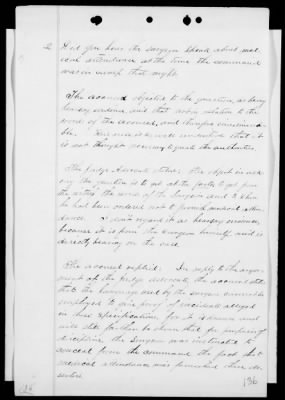 Q. Did you hear the surgeon speak about med-
ical attendance at the time the command
was in camp that night.
The accused objected to the question, as being
hearsay evidence, and that not in relation to the
words of the accused, and therefore inadmissi-
ble. This rule is so well understood that it
is not thought necessary to quote the authorities.
The Judge Advocate stated: The object in ask-
ing the question is to get at the facts, to get from
the witness the words of the Surgeon and to whom
he had been ordered not to furnish medical atten-
dance. I don't regard it as hearsay evidence,
because it is from the Surgeon himself and is
directly bearing on the case.
The accused replied: In reply to the argu-
ment of the judge advocate, the accused states
that the language used by the surgeon cannot be
employed to give proof of incidents alleged
in these specifications, for it is known and
will still farther be shown that for purposes of
discipline the Surgeon was instructed to
conceal from the command the fact that
medical attendance was furnished these de-
serters.
136